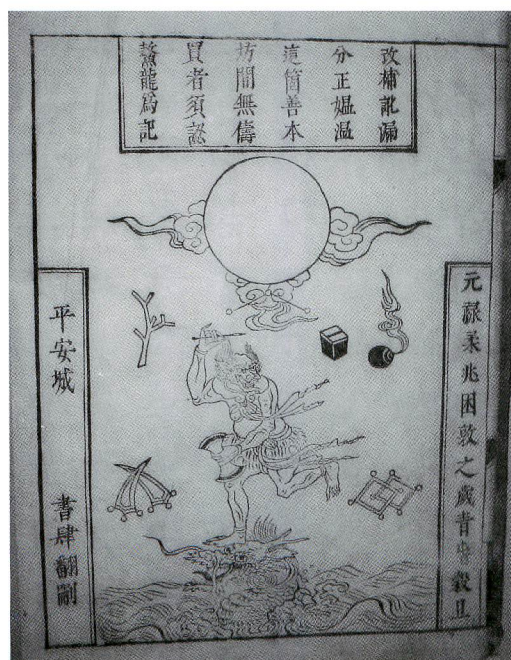 改補訛漏
分正媼温
這箇善本
坊間無儔
買者須認
鰲龍爲記
元禄柔兆困敦之歳青穀旦
平安城
書肆翻